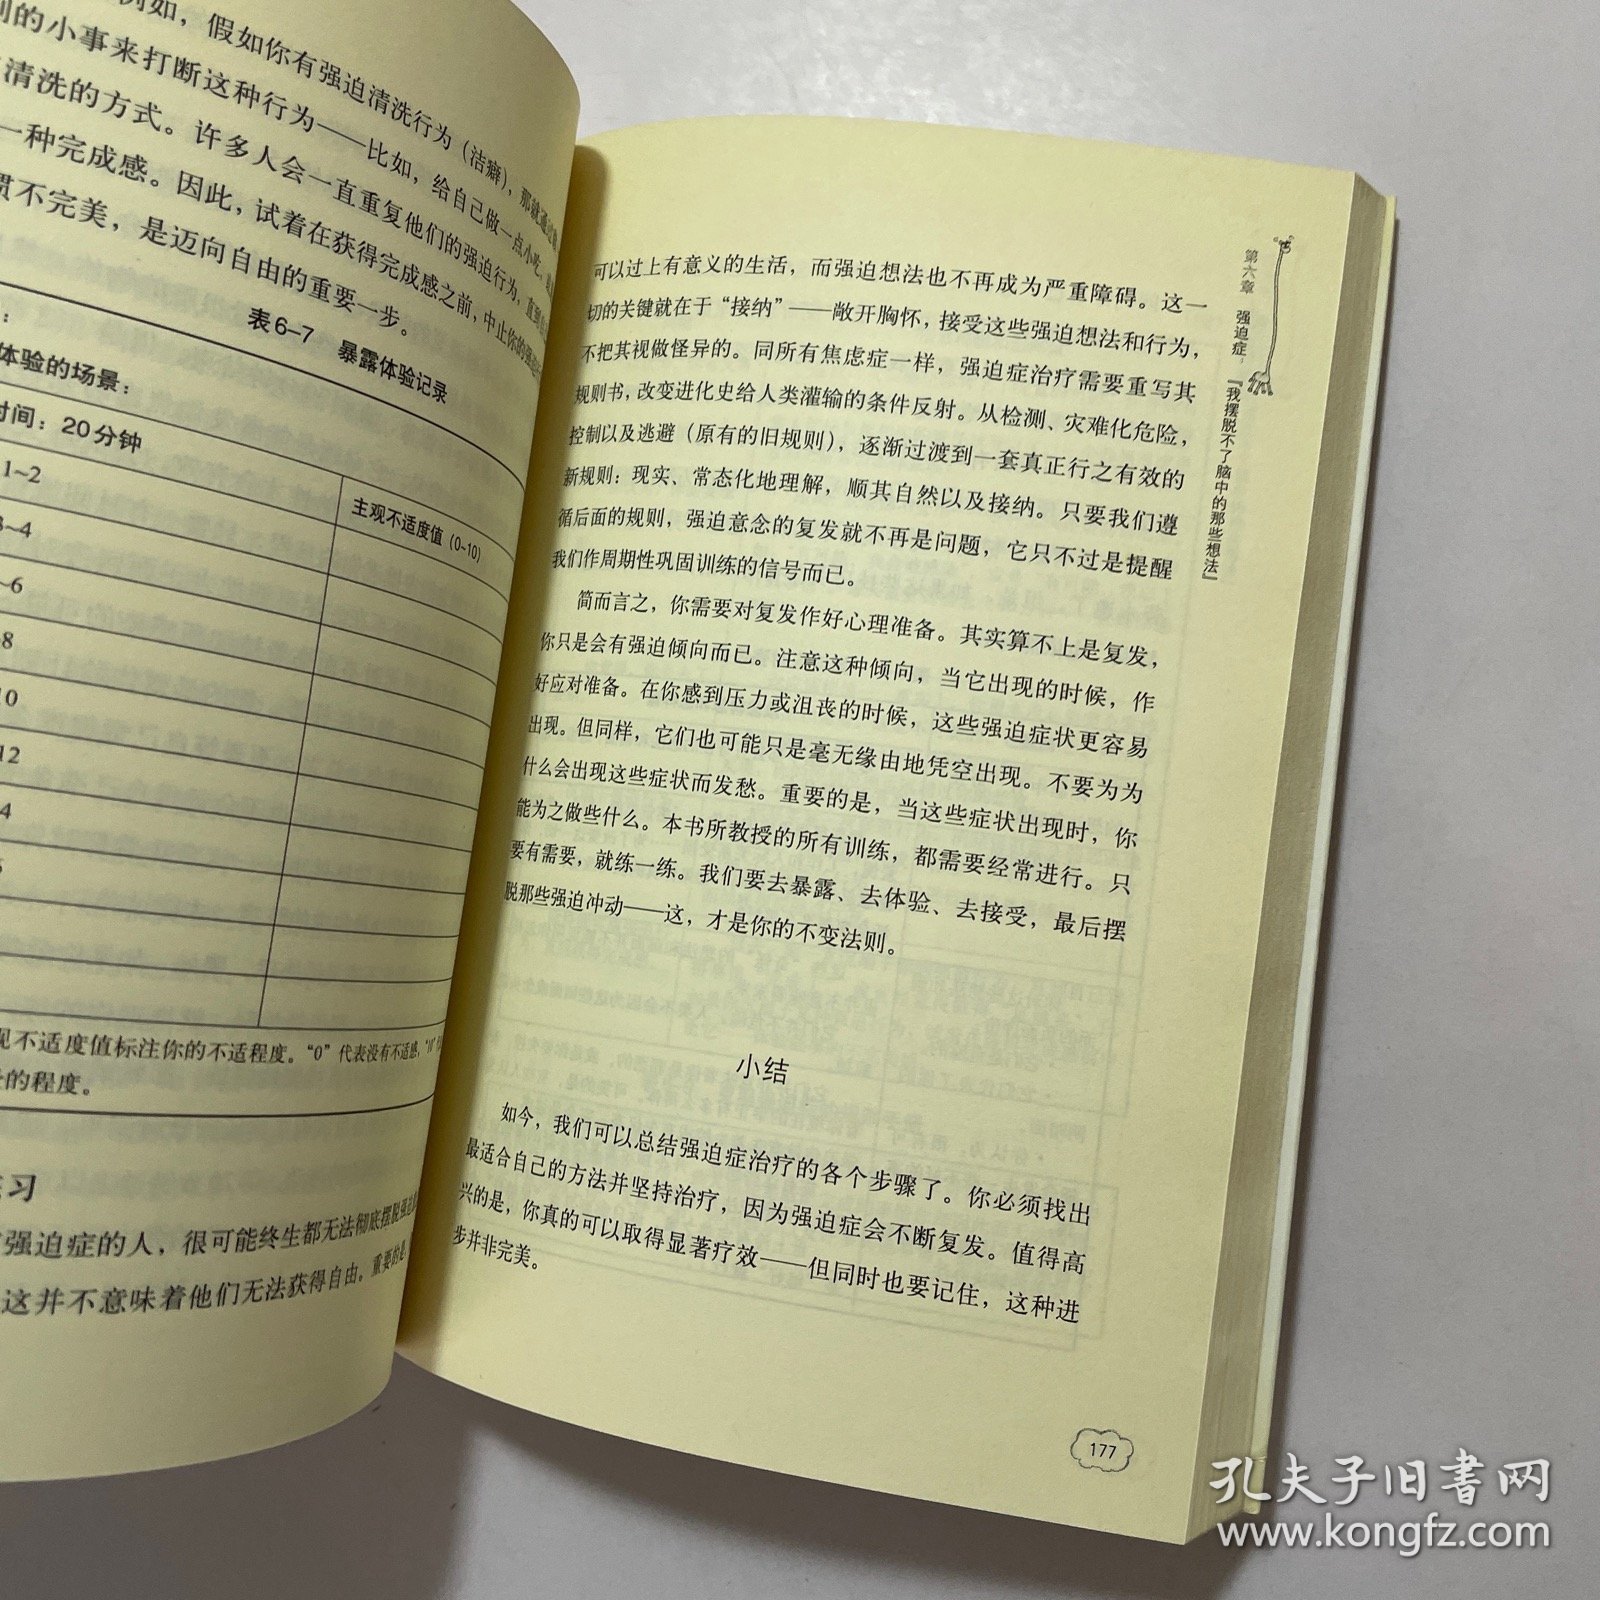 例如，假如你有强迫清洗行为（洁癖），那就通过
的小事来打断这种行为——比如，给自己做一点小吃，
清洗的方式。许多人会一直重复他们的强迫行为，直到
一种完成感。因此，试着在获得完成感之前，中止你的强迫
惯不完美，是迈向自由的重要一步。
表6–7 暴露体验记录
：
体验的场景：
时间：20分钟
主观不适度值（0~10）
1~2
3~4
~6
8
10
12
4
观不适度值标注你的不适程度。“0”代表没有不适感，“10”
的程度。
习
强迫症的人，很可能终生都无法彻底摆脱强迫
这并不意味着他们无法获得自由。重要的是，
第六章 强迫症：『我摆脱不了脑中的那些想法』
可以过上有意义的生活，而强迫想法也不再成为严重障碍。这一
切的关键就在于“接纳”——敞开胸怀，接受这些强迫想法和行为，
不把其视做怪异的。同所有焦虑症一样，强迫症治疗需要重写其
规则书，改变进化史给人类灌输的条件反射。从检测、灾难化危险，
控制以及逃避（原有的旧规则），逐渐过渡到一套真正行之有效的
新规则：现实、常态化地理解，顺其自然以及接纳。只要我们遵
循后面的规则，强迫意念的复发就不再是问题，它只不过是提醒
我们作周期性巩固训练的信号而已。
简而言之，你需要对复发作好心理准备。其实算不上是复发，
你只是会有强迫倾向而已。注意这种倾向，当它出现的时候，作
好应对准备。在你感到压力或沮丧的时候，这些强迫症状更容易
出现。但同样，它们也可能只是毫无缘由地凭空出现。不要为为
什么会出现这些症状而发愁。重要的是，当这些症状出现时，你
能为之做些什么。本书所教授的所有训练，都需要经常进行。只
要有需要，就练一练。我们要去暴露、去体验、去接受，最后摆
脱那些强迫冲动——这，才是你的不变法则。
小结
如今，我们可以总结强迫症治疗的各个步骤了。你必须找出
最适合自己的方法并坚持治疗，因为强迫症会不断复发。值得高
兴的是，你真的可以取得显著疗效——但同时也要记住，这种进
步并非完美。
177
孔夫子旧书网
www.kongfz.com